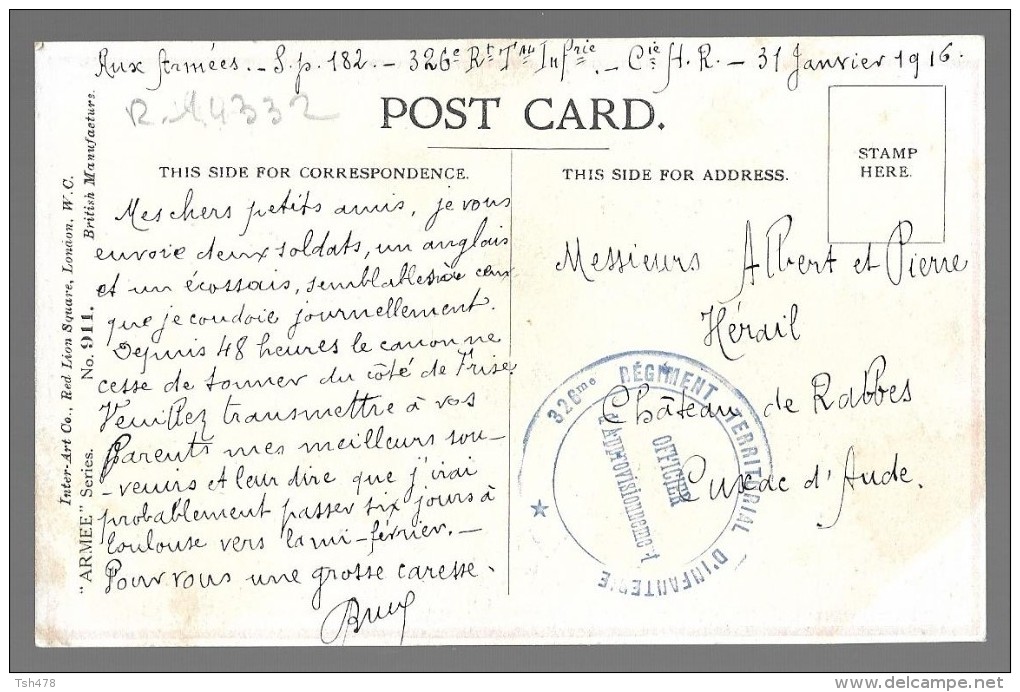 Aux Armées. - S.p. 182. - 326e Rt Tal Infrie. - Cie H. R. - 31 Janvier 1916.
R.14332
POST CARD.
STAMP
HERE.
THIS SIDE FOR CORRESPONDENCE.
THIS SIDE FOR ADDRESS.
Mes chers petits amis, je vous
envoie deux soldats, un anglais
et un écossais, semblables à ceux
que je coudoie journellement.
Depuis 48 heures le canon ne
cesse de tonner du côté de Frise.
Veuillez transmettre à vos
Parents mes meilleurs sou-
-venirs et leur dire que j'irai
probablement passer six jours à
Toulouse vers la mi-février. -
Pour vous une grosse caresse.
Messieurs Albert et Pierre
Hérail
Château de Rabbes
Cuxac d'Aude.
326me RÉGIMENT TERRITORIAL D'INFANTERIE
OFFICIER
d'APPROVISIONNEMENT
Inter-Art Co., Red Lion Square, London, W.C.
"ARMEE" Series. No. 911. British Manufacture.
Tsh478
delcampe.net